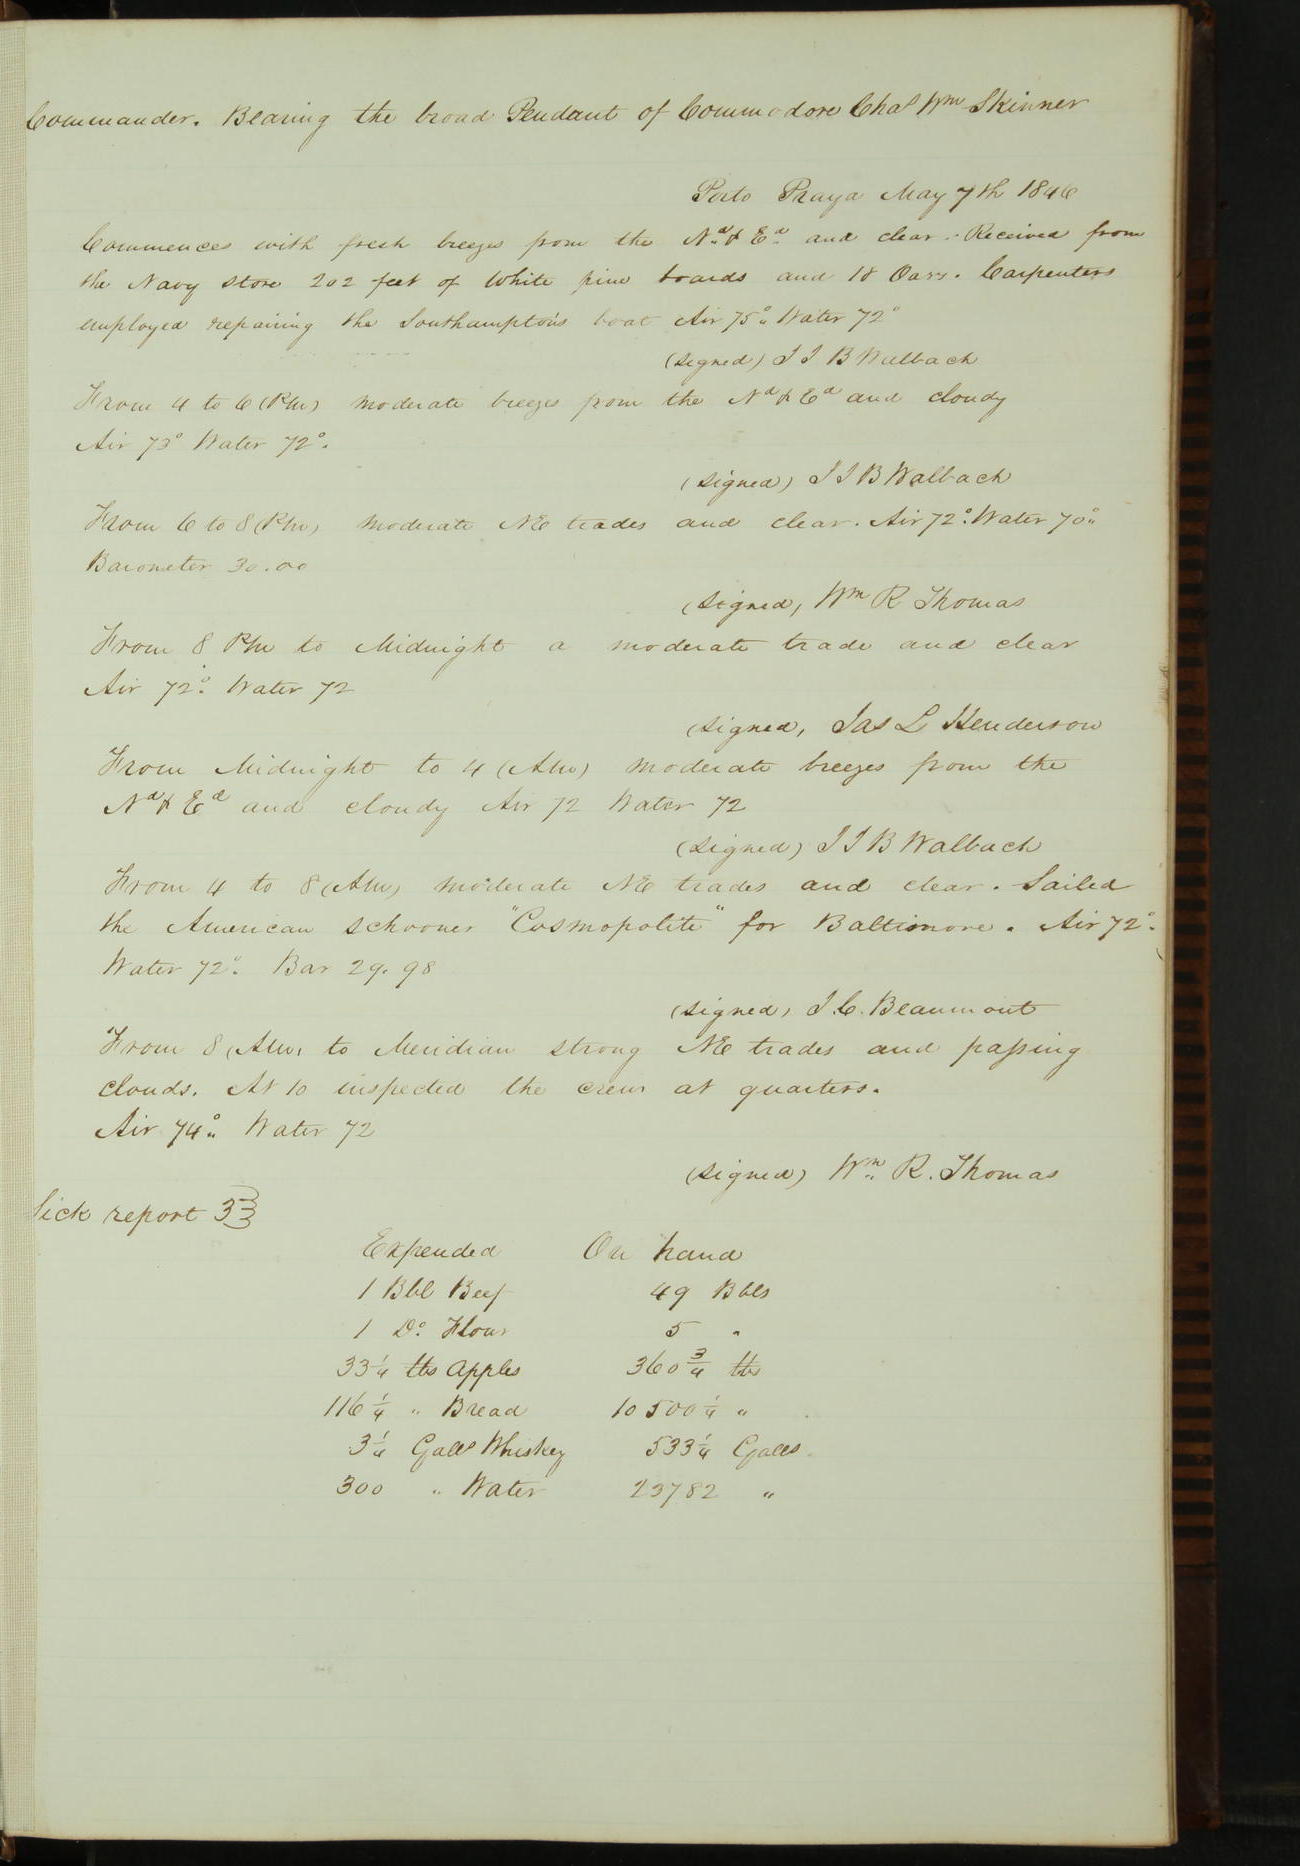 Commander. Bearing the broad Pendant of Commodore Chas Wm Skinner
Porto Praya May 7th 1846
Commences with fresh breezes from the Nd & Ed and clear. Received from
the Navy store 202 feet of White pine boards and 18 Oars. Carpenters
employed repairing the Southampton's boat Air 75° Water 72°
(signed) J J B Walbach
From 4 to 6 (PM) moderate breezes from the Nd & Ed and cloudy
Air 73° Water 72°.
(signed) J J B Walbach
From 6 to 8 (PM) moderate NE trades and clear. Air 72° Water 70°
Barometer 30.00
(signed, Wm R Thomas
From 8 PM to Midnight a moderate trade and clear
Air 72° Water 72
(signed, Jas L Henderson
From Midnight to 4 (AM) moderate breezes from the
Nd & Ed and cloudy Air 72 Water 72
(signed) J J B Walbach
From 4 to 8 (AM) moderate NE trades and clear. Sailed
the American schooner "Cosmopolite" for Baltimore. Air 72°.
Water 72°. Bar 29.98
(signed) J. C. Beaumont
From 8 (AM) to Meridian strong NE trades and passing
clouds. At 10 inspected the crew at quarters.
Air 74° Water 72
(signed) Wm R. Thomas
Sick report 33
Expended On hand
1 Bbl Beef 49 Bbls
1 Do. Flour 5 "
33 1/4 lbs Apples 360 3/4 lbs
116 1/4 " Bread 10500 1/4 "
3 1/4 Galls Whiskey 533 1/4 Galls
300 " Water 23782 "